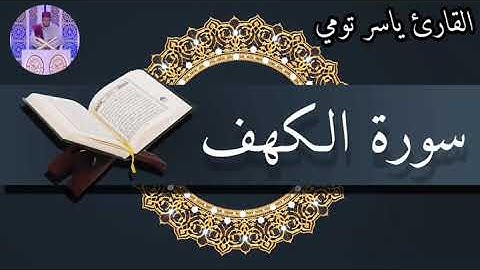 القارئ ياسر تومي
سورة الكهف